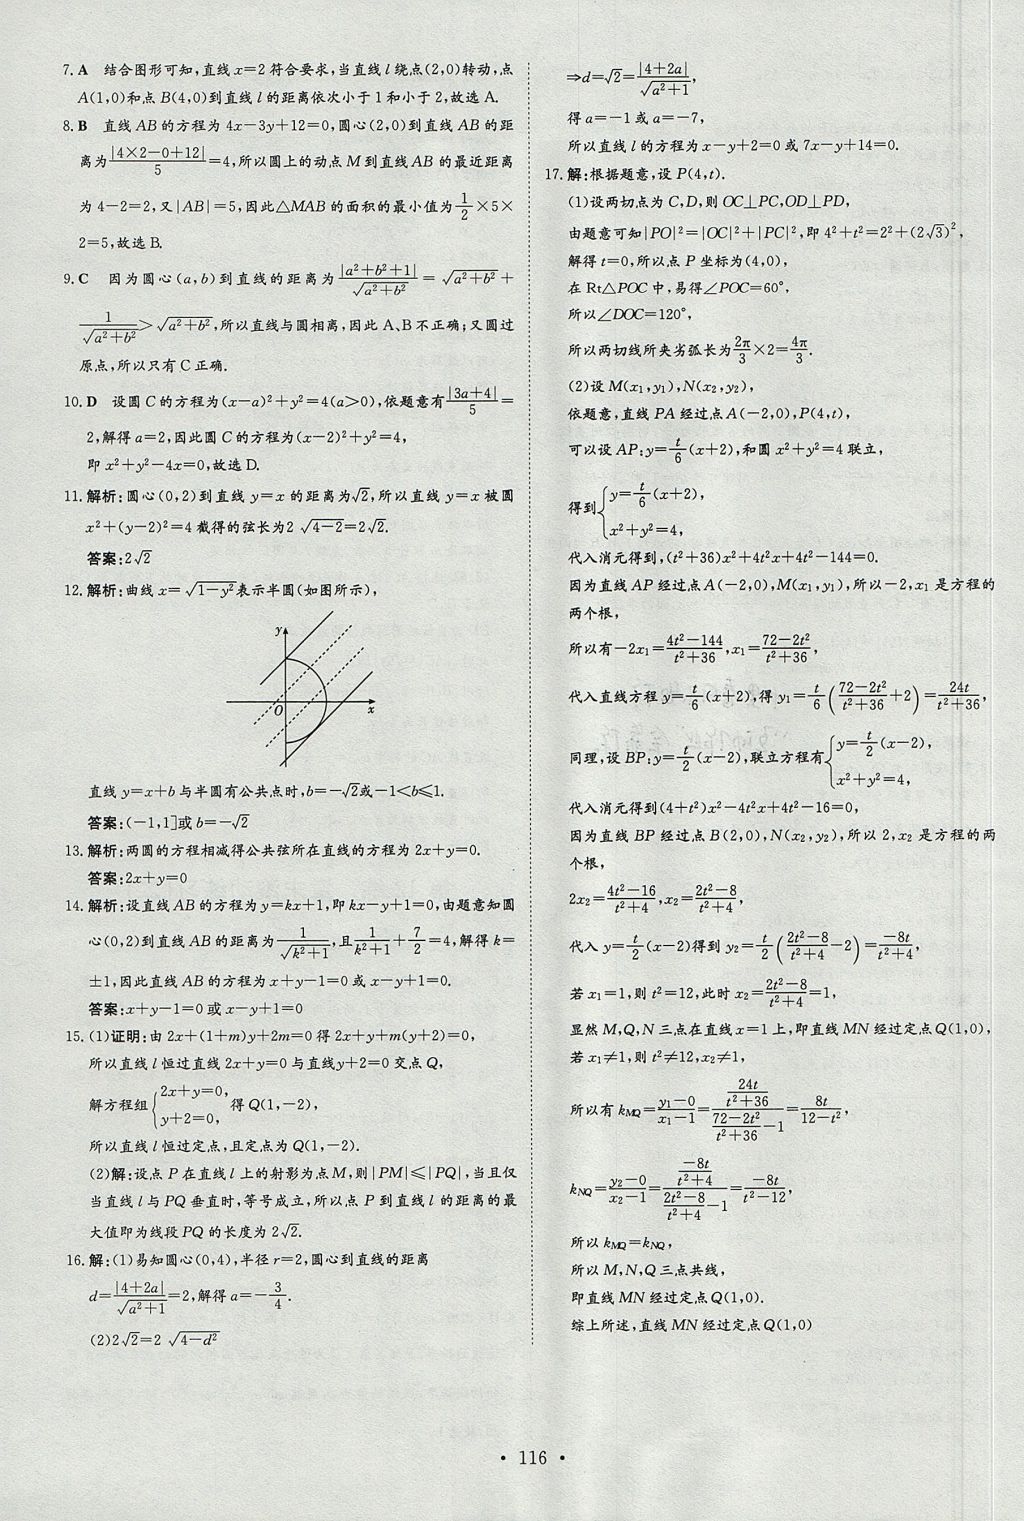 7. A 结合图形可知,直线x=2符合要求,当直线l绕点(2,0)转动,点
A(1,0)和点B(4,0)到直线l的距离依次小于1和小于2,故选A.
8. B 直线AB的方程为4x-3y+12=0,圆心(2,0)到直线AB的距
离为|4×2-0+12|/5=4,所以圆上的动点M到直线AB的最近距离
为4-2=2,又|AB|=5,因此△MAB的面积的最小值为1/2×5×
2=5,故选B.
9. C 因为圆心(a,b)到直线的距离为|a²+b²+1|/√(a²+b²)=√(a²+b²)+
1/√(a²+b²)>√(a²+b²),所以直线与圆相离,因此A、B不正确;又圆过
原点,所以只有C正确.
10. D 设圆C的方程为(x-a)²+y²=4(a>0),依题意有|3a+4|/5=
2,解得a=2,因此圆C的方程为(x-2)²+y²=4,
即x²+y²-4x=0,故选D.
11. 解析:圆心(0,2)到直线y=x的距离为√2,所以直线y=x被圆
x²+(y-2)²=4截得的弦长为2√(4-2)=2√2.
答案:2√2
12. 解析:曲线x=√(1-y²)表示半圆(如图所示),
y
O
x
直线y=x+b与半圆有公共点时,b=-√2或-1<b≤1.
答案:(-1,1]或b=-√2
13. 解析:两圆的方程相减得公共弦所在直线的方程为2x+y=0.
答案:2x+y=0
14. 解析:设直线AB的方程为y=kx+1,即kx-y+1=0,由题意知圆
心(0,2)到直线AB的距离为1/√(k²+1),且1/(k²+1)+7/2=4,解得k=
±1,因此直线AB的方程为x+y-1=0或x-y+1=0.
答案:x+y-1=0或x-y+1=0
15. (1)证明:由2x+(1+m)y+2m=0得2x+y+m(y+2)=0,
所以直线l恒过直线2x+y=0与直线y+2=0交点Q,
解方程组{2x+y=0, y+2=0,得Q(1,-2),
所以直线l恒过定点,且定点为Q(1,-2).
(2)解:设点P在直线l上的射影为点M,则|PM|≤|PQ|,当且仅
当直线l与PQ垂直时,等号成立,所以点P到直线l的距离的最
大值即为线段PQ的长度为2√2.
16. 解:(1)易知圆心(0,4),半径r=2,圆心到直线的距离
d=|4+2a|/√(a²+1)=2,解得a=-3/4.
(2)2√2=2√(4-d²)
⇒d=√2=|4+2a|/√(a²+1),
得a=-1或a=-7,
所以直线l的方程为x-y+2=0或7x-y+14=0.
17. 解:根据题意,设P(4,t).
(1)设两切点为C,D,则OC⊥PC,OD⊥PD,
由题意可知|PO|²=|OC|²+|PC|²,即4²+t²=2²+(2√3)²,
解得t=0,所以点P坐标为(4,0),
在Rt△POC中,易得∠POC=60°,
所以∠DOC=120°,
所以两切线所夹劣弧长为2π/3×2=4π/3.
(2)设M(x₁,y₁),N(x₂,y₂),
依题意,直线PA经过点A(-2,0),P(4,t),
可以设AP:y=t/6(x+2),和圆x²+y²=4联立,
得到{y=t/6(x+2), x²+y²=4,
代入消元得到,(t²+36)x²+4t²x+4t²-144=0.
因为直线AP经过点A(-2,0),M(x₁,y₁),所以-2,x₁是方程的
两个根,
所以有-2x₁=(4t²-144)/(t²+36),x₁=(72-2t²)/(t²+36),
代入直线方程y=t/6(x+2),得y₁=t/6((72-2t²)/(t²+36)+2)=24t/(t²+36),
同理,设BP:y=t/2(x-2),联立方程有{y=t/2(x-2), x²+y²=4,
代入消元得到(4+t²)x²-4t²x+4t²-16=0,
因为直线BP经过点B(2,0),N(x₂,y₂),所以2,x₂是方程的两
个根,
2x₂=(4t²-16)/(t²+4),x₂=(2t²-8)/(t²+4),
代入y=t/2(x-2)得到y₂=t/2((2t²-8)/(t²+4)-2)=-8t/(t²+4),
若x₁=1,则t²=12,此时x₂=(2t²-8)/(t²+4)=1,
显然M,Q,N三点在直线x=1上,即直线MN经过定点Q(1,0),
若x₁≠1,则t²≠12,x₂≠1,
所以有k_MQ=(y₁-0)/(x₁-1)=(24t/(t²+36))/((72-2t²)/(t²+36)-1)=8t/(12-t²),
k_NQ=(y₂-0)/(x₂-1)=(-8t/(t²+4))/((2t²-8)/(t²+4)-1)=-8t/(t²-12),
所以k_MQ=k_NQ,
所以M,N,Q三点共线,
即直线MN经过定点Q(1,0).
综上所述,直线MN经过定点Q(1,0)
• 116 •